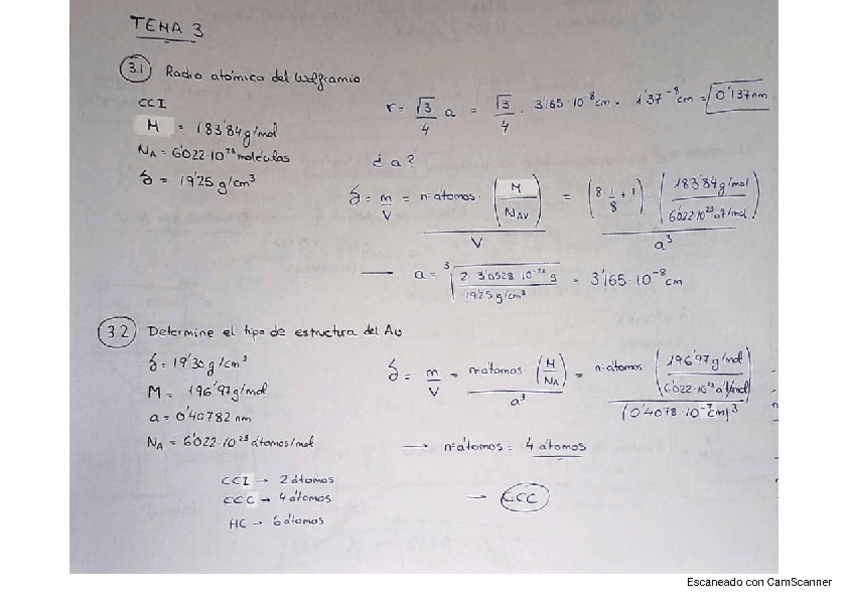 TEMA 3
3.1 Radio atómico del Wolframio
CCI
M = 183'84 g/mol
NA = 6'022·10²³ moléculas
δ = 19'25 g/cm³
r = √3/4 a = √3/4 · 3'165·10⁻⁸ cm = 1'37⁻⁸ cm = 0'137 nm
¿ a ?
δ = m/V = nº átomos · (M/NAV) / V = (8·1/8 + 1) · (183'84 g/mol / 6'022·10²³ at/mol) / a³
→ a = ³√(2 · 3'0528 · 10⁻²² g / 19'25 g/cm³) = 3'165·10⁻⁸ cm
3.2 Determine el tipo de estructura del Au
δ = 19'30 g/cm³
M = 196'97 g/mol
a = 0'40782 nm
NA = 6'022·10²³ átomos/mol
δ = m/V = nº átomos · (M/NA) / a³ = nº átomos · (196'97 g/mol / 6'022·10²³ at/mol) / (0'4078·10⁻⁷ cm)³
→ nº átomos = 4 átomos
CCI → 2 átomos
CCC → 4 átomos
HC → 6 átomos
→ CCC
Escaneado con CamScanner